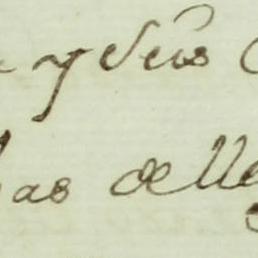 y Seis
as de lle